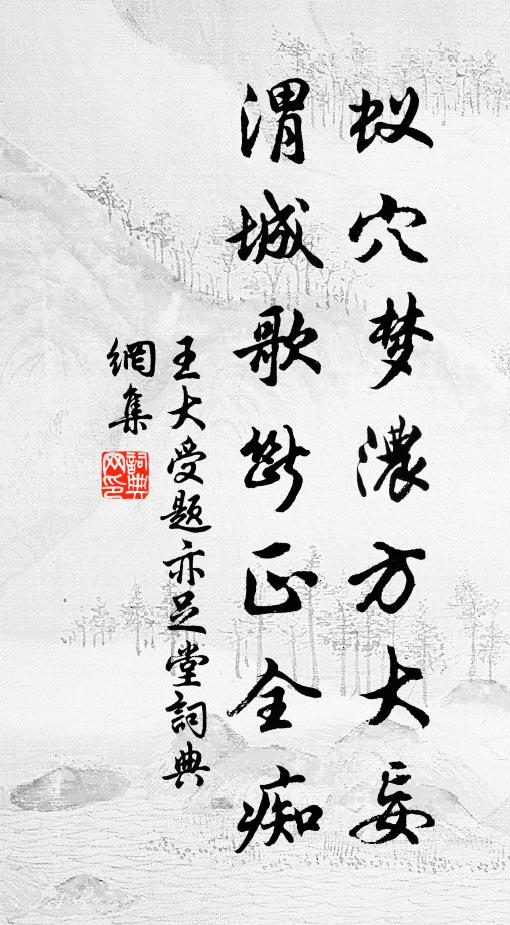 蚁穴梦浓方大妄
渭城歌断正全痴
王大受题亦足堂词典
網集
詞典網印